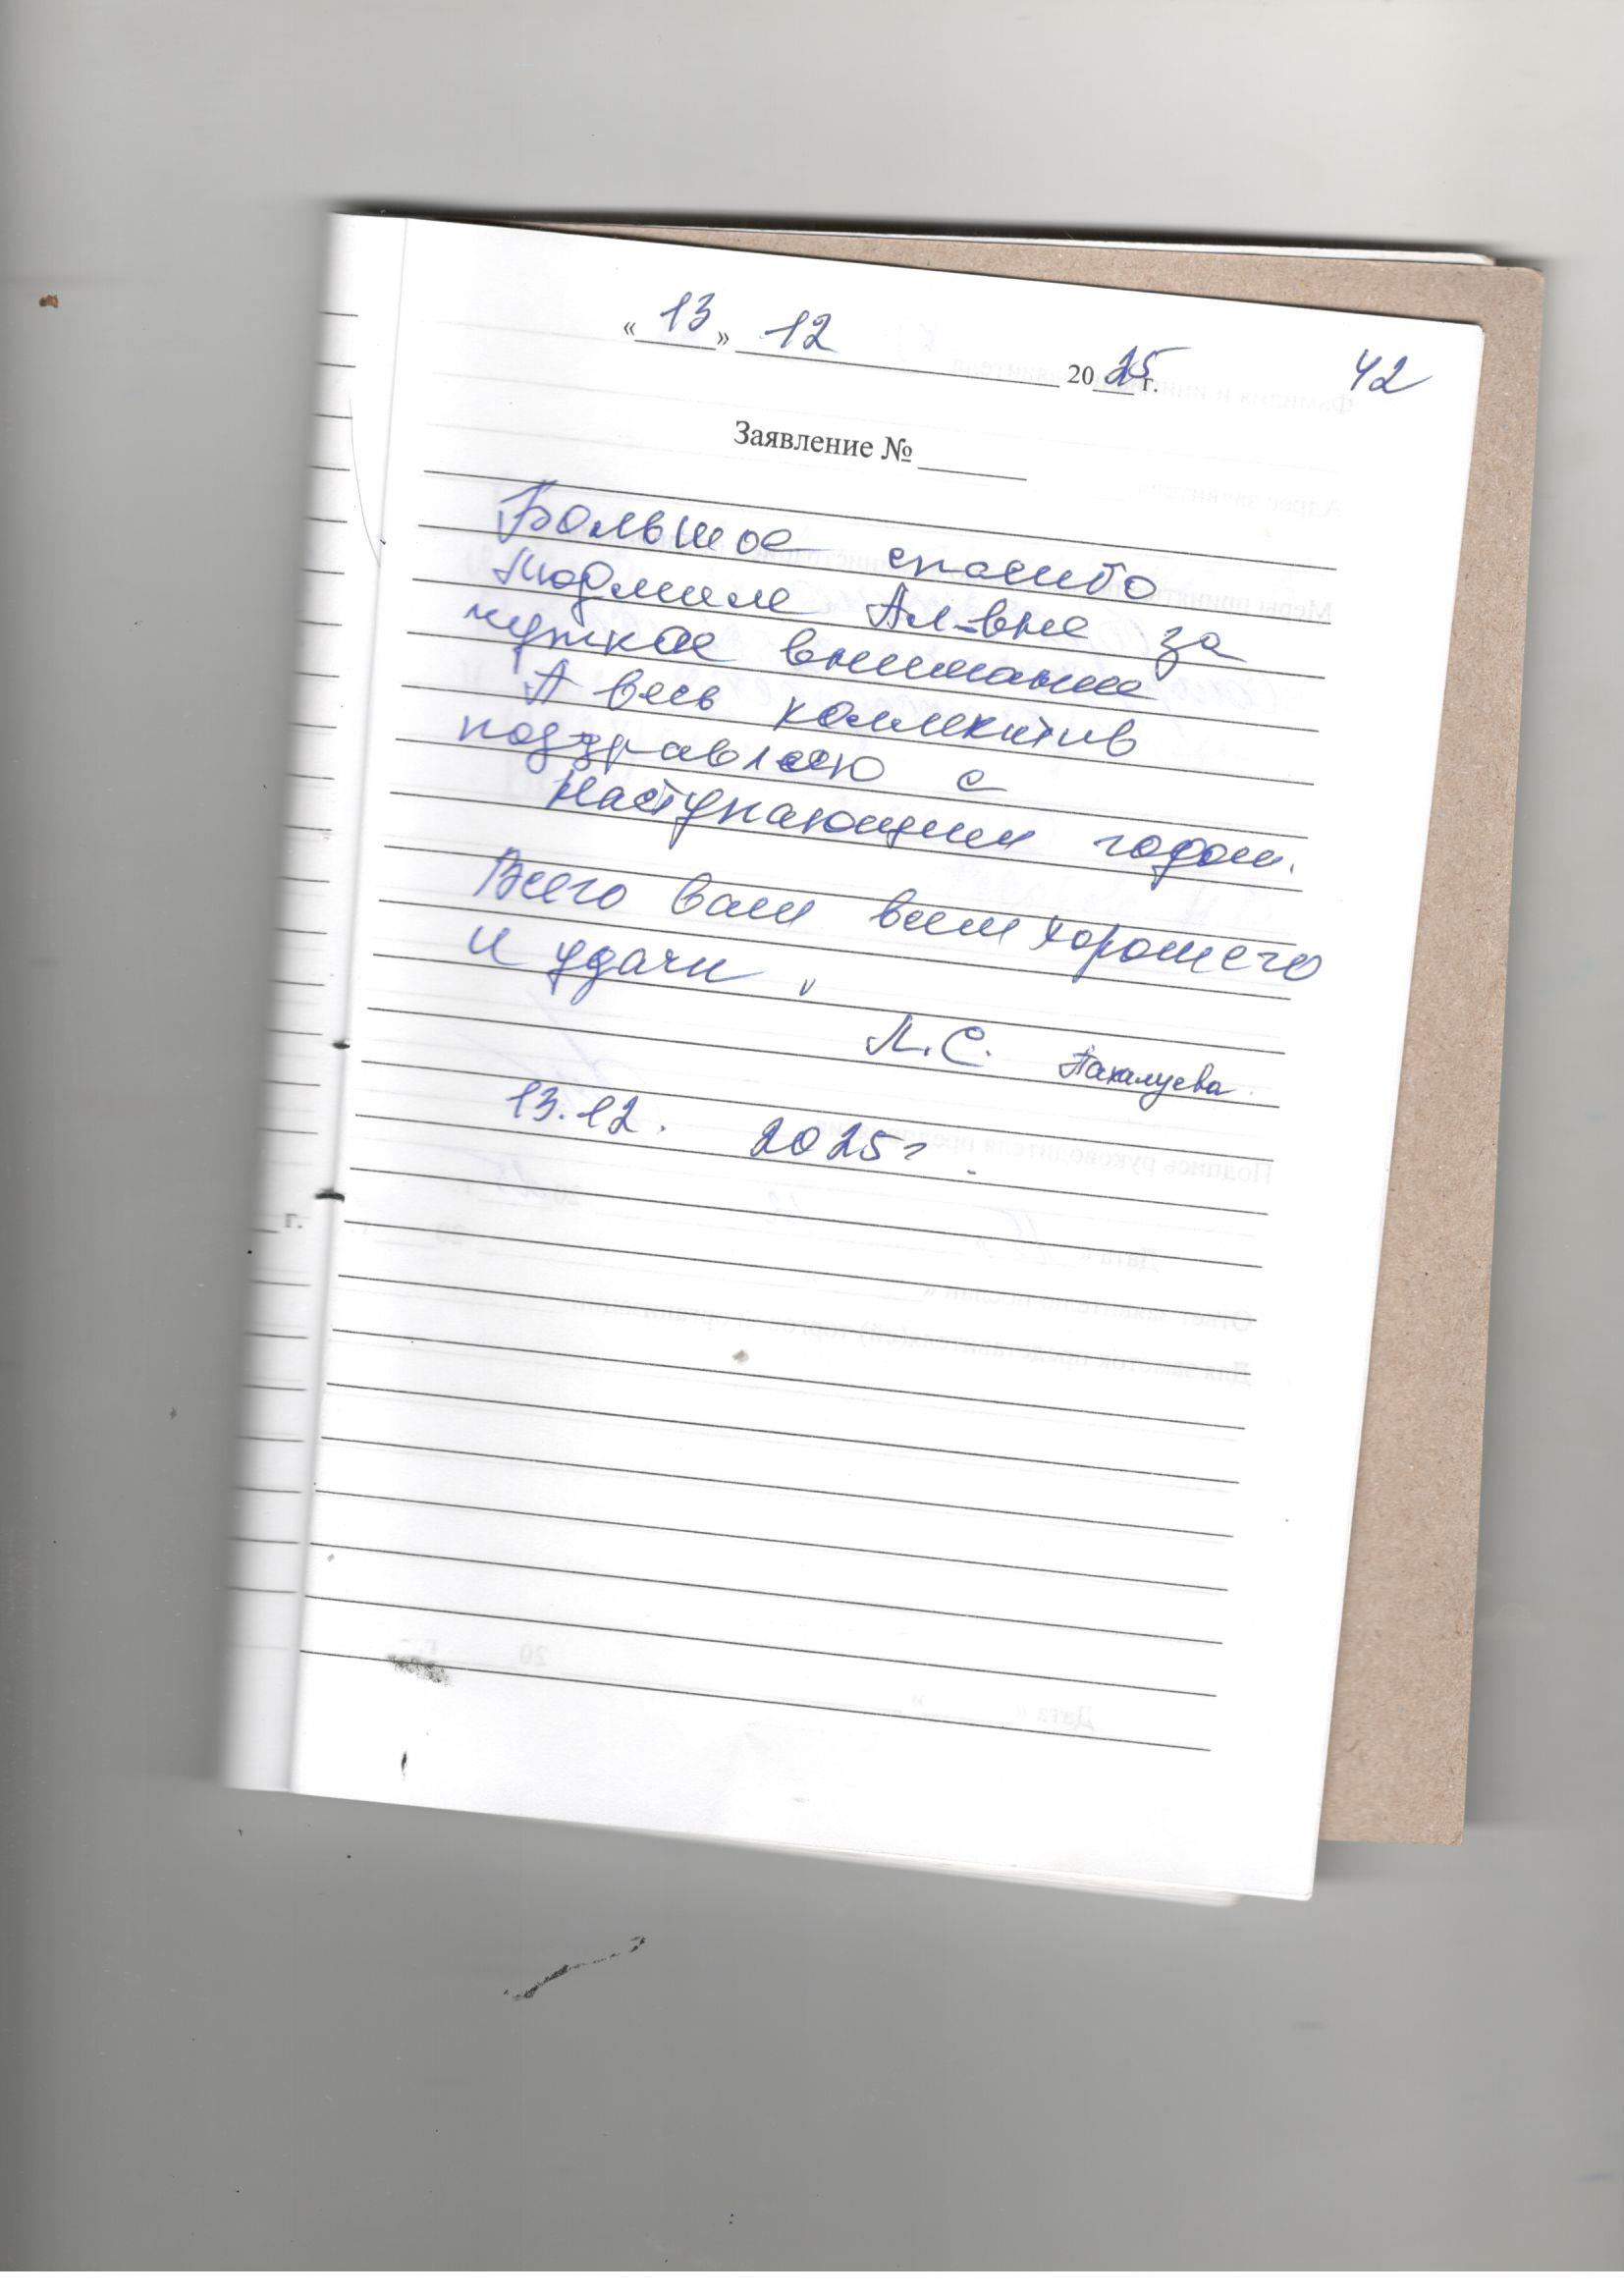 «13» 12 2025 г. 42
Заявление № ______
Большое спасибо
Людмиле Ал-вне за
чуткое внимание
А весь коллектив
поздравляю с
наступающим годом.
Всего вам всем хорошего
и удачи.
Л.С.
13.12. 2025 г.
г.